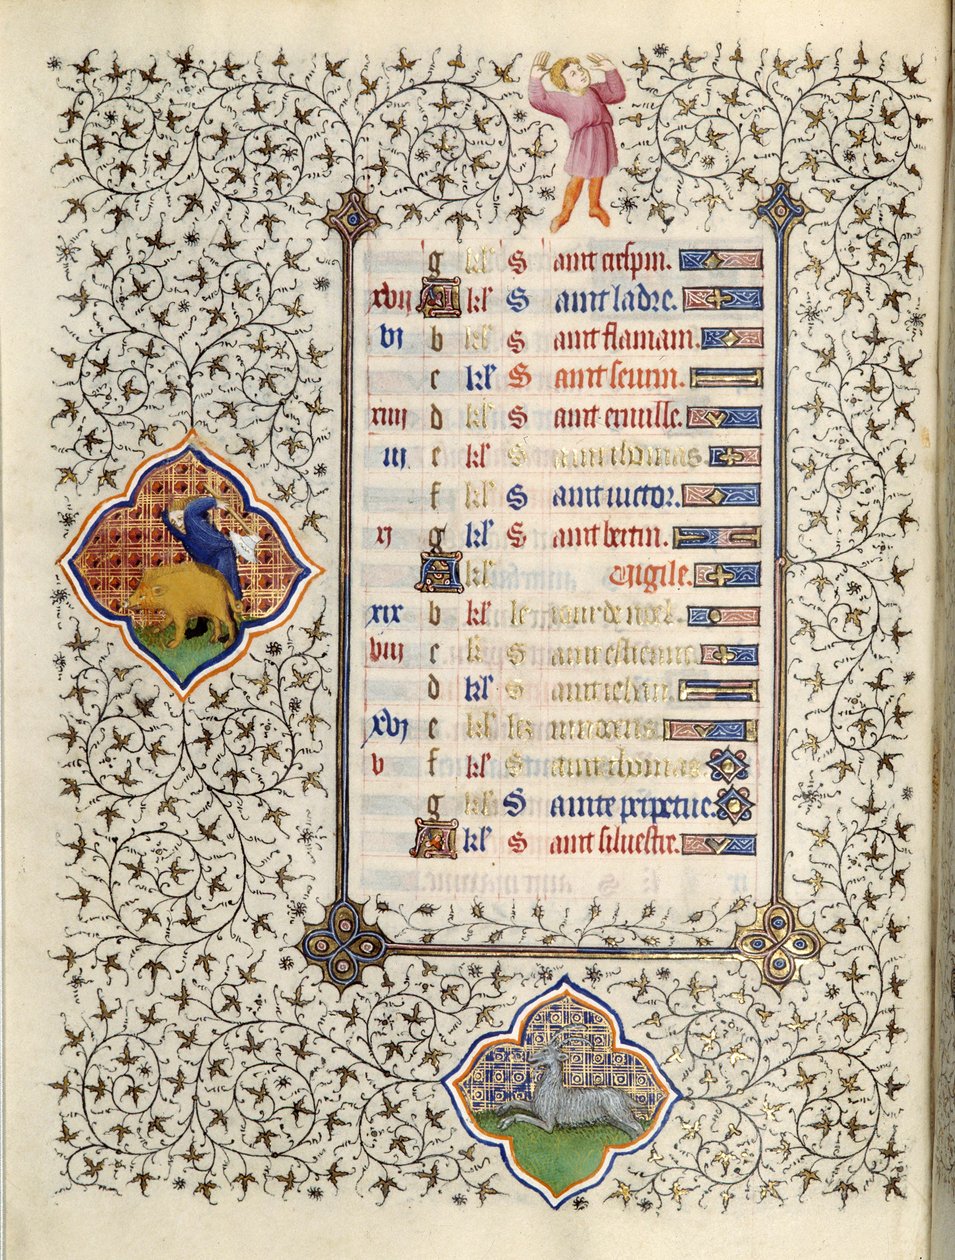 g kł S aint crespin.
xvii A kł S aint ladre.
vi b kł S aint flamam.
c kł S aint seurin.
xiiii d kł S aint eruisse.
iii e kł S aint thomas.
f kł S aint victor.
xi g kł S aint bertin.
A kł Vigile.
xix b kł le iour de noel.
viii c kł S aint estienne
d kł S aint iehan.
xvi e kł les innocens.
v f kł S aint thomas.
g kł S ainte perpetue.
A kł S aint siluestr.